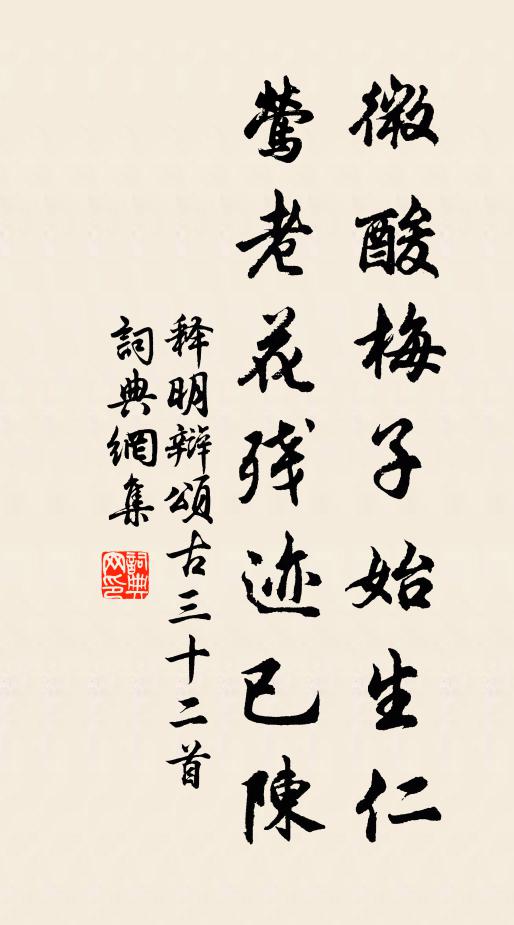 微酸梅子始生仁
莺老花残迹已陳
释明辩頌古三十二首
詞典網集
詞典网印